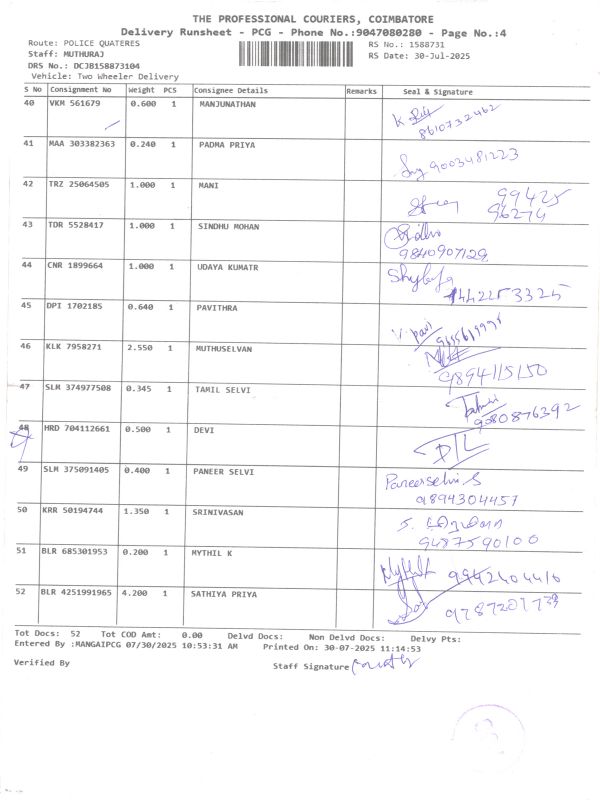 THE PROFESSIONAL COURIERS, COIMBATORE
Delivery Runsheet - PCG - Phone No.:9047080280 - Page No.:4
Route: POLICE QUATERES RS No.: 1588731
Staff: MUTHURAJ RS Date: 30-Jul-2025
DRS No.: DCJB158873104
Vehicle: Two Wheeler Delivery
S No Consignment No Weight PCS Consignee Details Remarks Seal & Signature
40 VKM 561679 0.600 1 MANJUNATHAN
8610732462
41 MAA 303382363 0.240 1 PADMA PRIYA
9003481223
42 TRZ 25064505 1.000 1 MANI
99425
96274
43 TDR 5528417 1.000 1 SINDHU MOHAN
9840907129
44 CNR 1899664 1.000 1 UDAYA KUMATR
45 DPI 1702185 0.640 1 PAVITHRA
46 KLK 7958271 2.550 1 MUTHUSELVAN
9894115150
47 SLM 374977508 0.345 1 TAMIL SELVI
9080876392
48 HRD 704112661 0.500 1 DEVI
DTL
49 SLM 375091405 0.400 1 PANEER SELVI
Paneerselvi S
9894304457
50 KRR 50194744 1.350 1 SRINIVASAN
9487590100
51 BLR 685301953 0.200 1 MYTHIL K
9942404416
52 BLR 4251991965 4.200 1 SATHIYA PRIYA
Tot Docs: 52 Tot COD Amt: 0.00 Delvd Docs: Non Delvd Docs: Delvy Pts:
Entered By :MANGAIPCG 07/30/2025 10:53:31 AM Printed On: 30-07-2025 11:14:53
Verified By Staff Signature